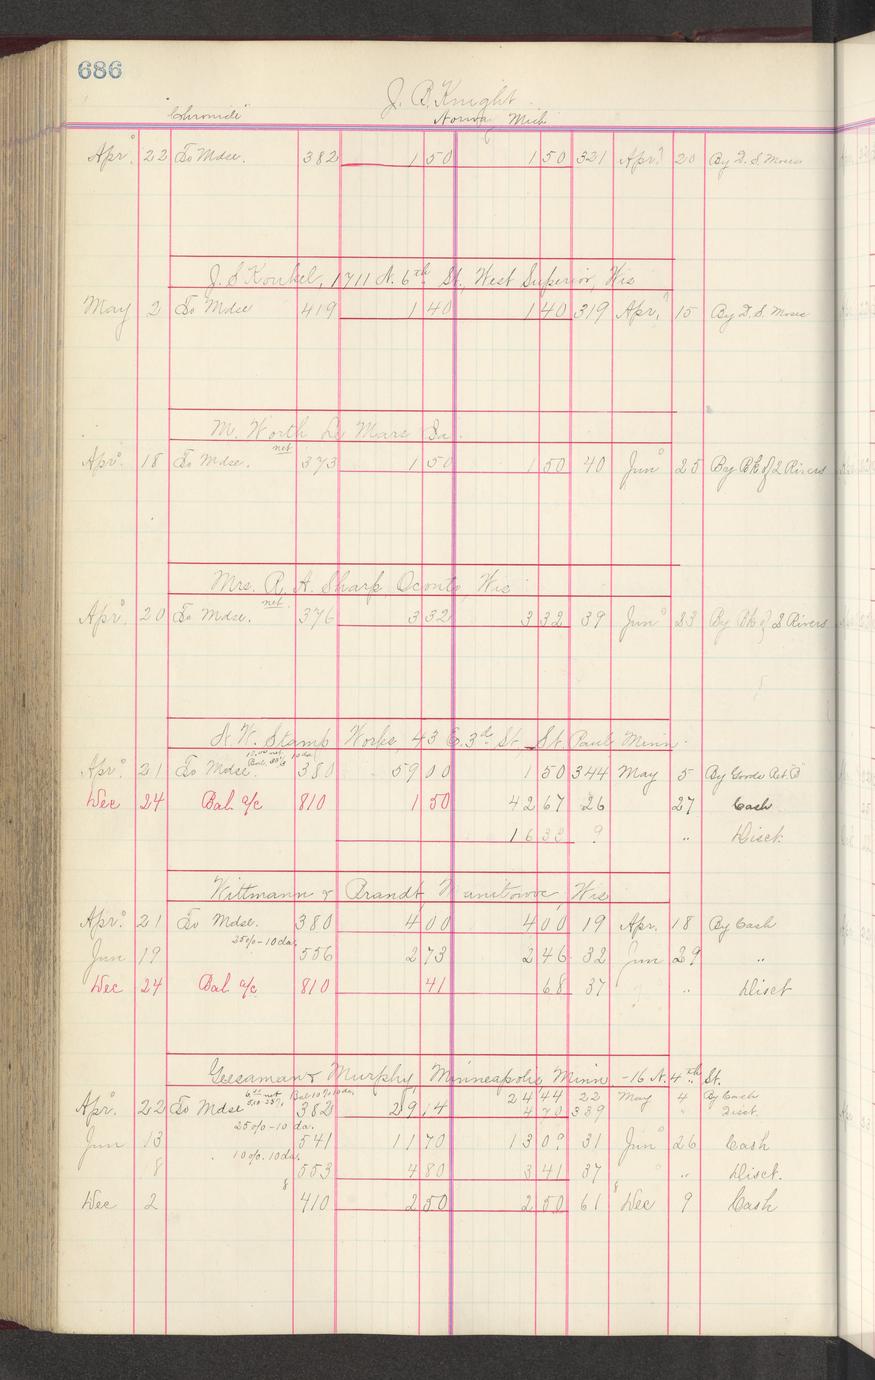 686
J. B. Knight
"Chronicle" Norway Mich
Apr. 22 To Mdse. 382 1 50 1 50 321 Apr. 20 By D. S. Moses
J. S. Konkel, 1711 N. 6th St, West Superior, Wis
May 2 To Mdse 419 1 40 1 40 319 Apr. 15 By D. S. Moses
M. Worth Le Mars Ia.
net
Apr. 18 To Mdse. 373 1 50 1 50 40 Jun 25 By Bk of 2 Rivers
Mrs. R. A. Sharp Oconto, Wis
net
Apr. 20 To Mdse. 376 3 32 3 32 39 Jun 23 By Bk of 2 Rivers
N. W. Stamp Works 43 E. 3rd St. St. Paul Minn.
Apr. 21 To Mdse. 380 59 00 1 50 344 May 5 By Goods Ret'd
Dec 24 Bal a/c 810 1 50 42 67 26 27 Cash
16 33 " Disct.
Wittmann & Brandt Manitowoc, Wis
Apr. 21 To Mdse. 380 4 00 4 00 19 Apr. 18 By Cash
25%-10 da.
Jun 19 556 2 73 2 46 32 Jun 29 "
Dec 24 Bal a/c 810 41 68 37 " Disct
Geesaman & Murphy, Minneapolis, Minn - 16 N. 4th St.
24 44 22 May 4 By Cash
Apr. 22 To Mdse 382 29 14 4 70 389 " Disct.
25%-10 da.
Jun 13 541 11 70 13 09 31 Jun 26 Cash
10%.10 da.
18 553 4 80 3 41 37 " Disct.
Dec 2 410 2 50 2 50 61 Dec 9 Cash